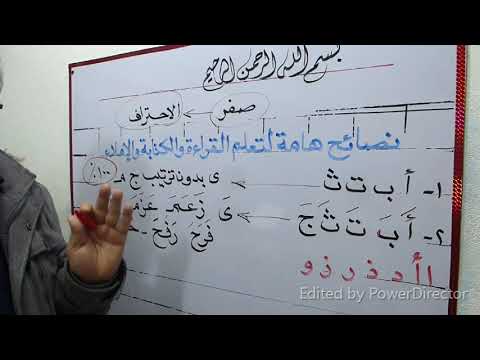 بسم الله الرحمن الرحيم
صفر ← الاحتراف
نصائح هامة لتعلم القراءة والكتابة والإملاء
١- أ ب ت ث ← ي بدون ترتيب ج م ١٠٠٪
٢- أَ بَ تَ ثَ جَ ← يَ زعم
فَرَحَ
ا أ د ذ ر ز و
Edited by PowerDirector